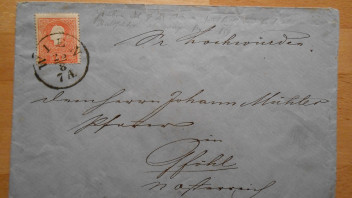 WIEN
7A.
Sr Hochwürden
dem Herrn Johann Mühler
Pfarrer
in
Gföhl
N Österreich